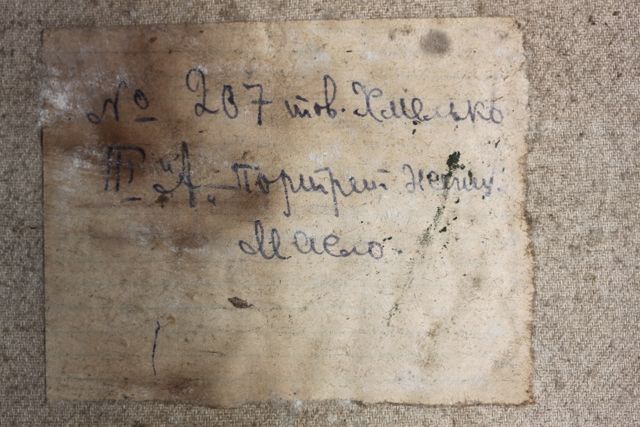 № 207 тов. Хмелько
III "А" - Портрет женщ.
Масло.